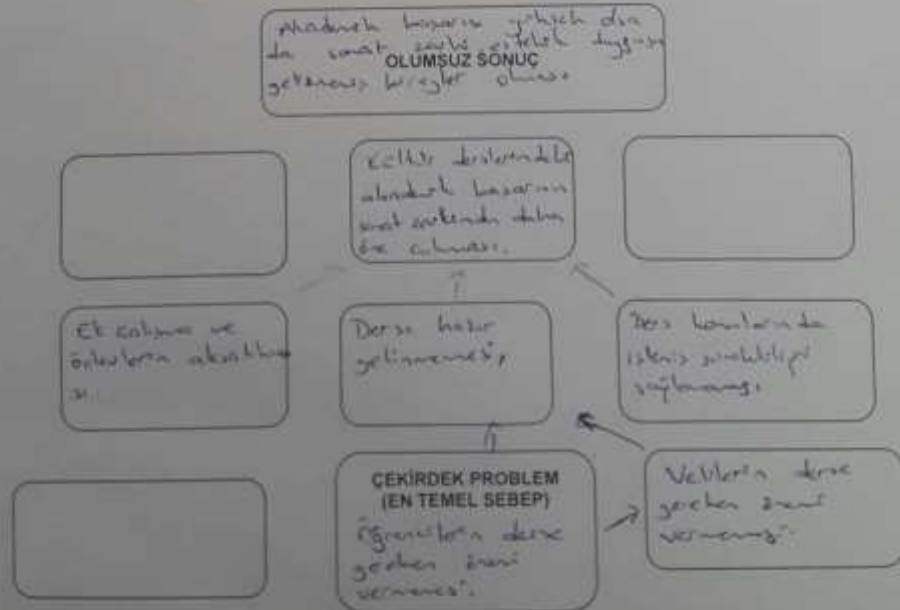 Akademik başarısı yüksek olsa
da sanat zevki estetik duygusu
OLUMSUZ SONUÇ
gelişmemiş bireyler olması.
Kültür derslerindeki
akademik başarının
sanat zevkinden daha
öne çıkması.
Ek çalışma ve
ödevlerin aksatılma
sı.
Derse hazır
gelinmemesi,
Ders konularında
işleniş sürekliliği
sağlanamaması
ÇEKİRDEK PROBLEM
(EN TEMEL SEBEP)
Öğrencilerin derse
gereken önemi
vermemesi.
Velilerin derse
gereken önemi
vermemesi.